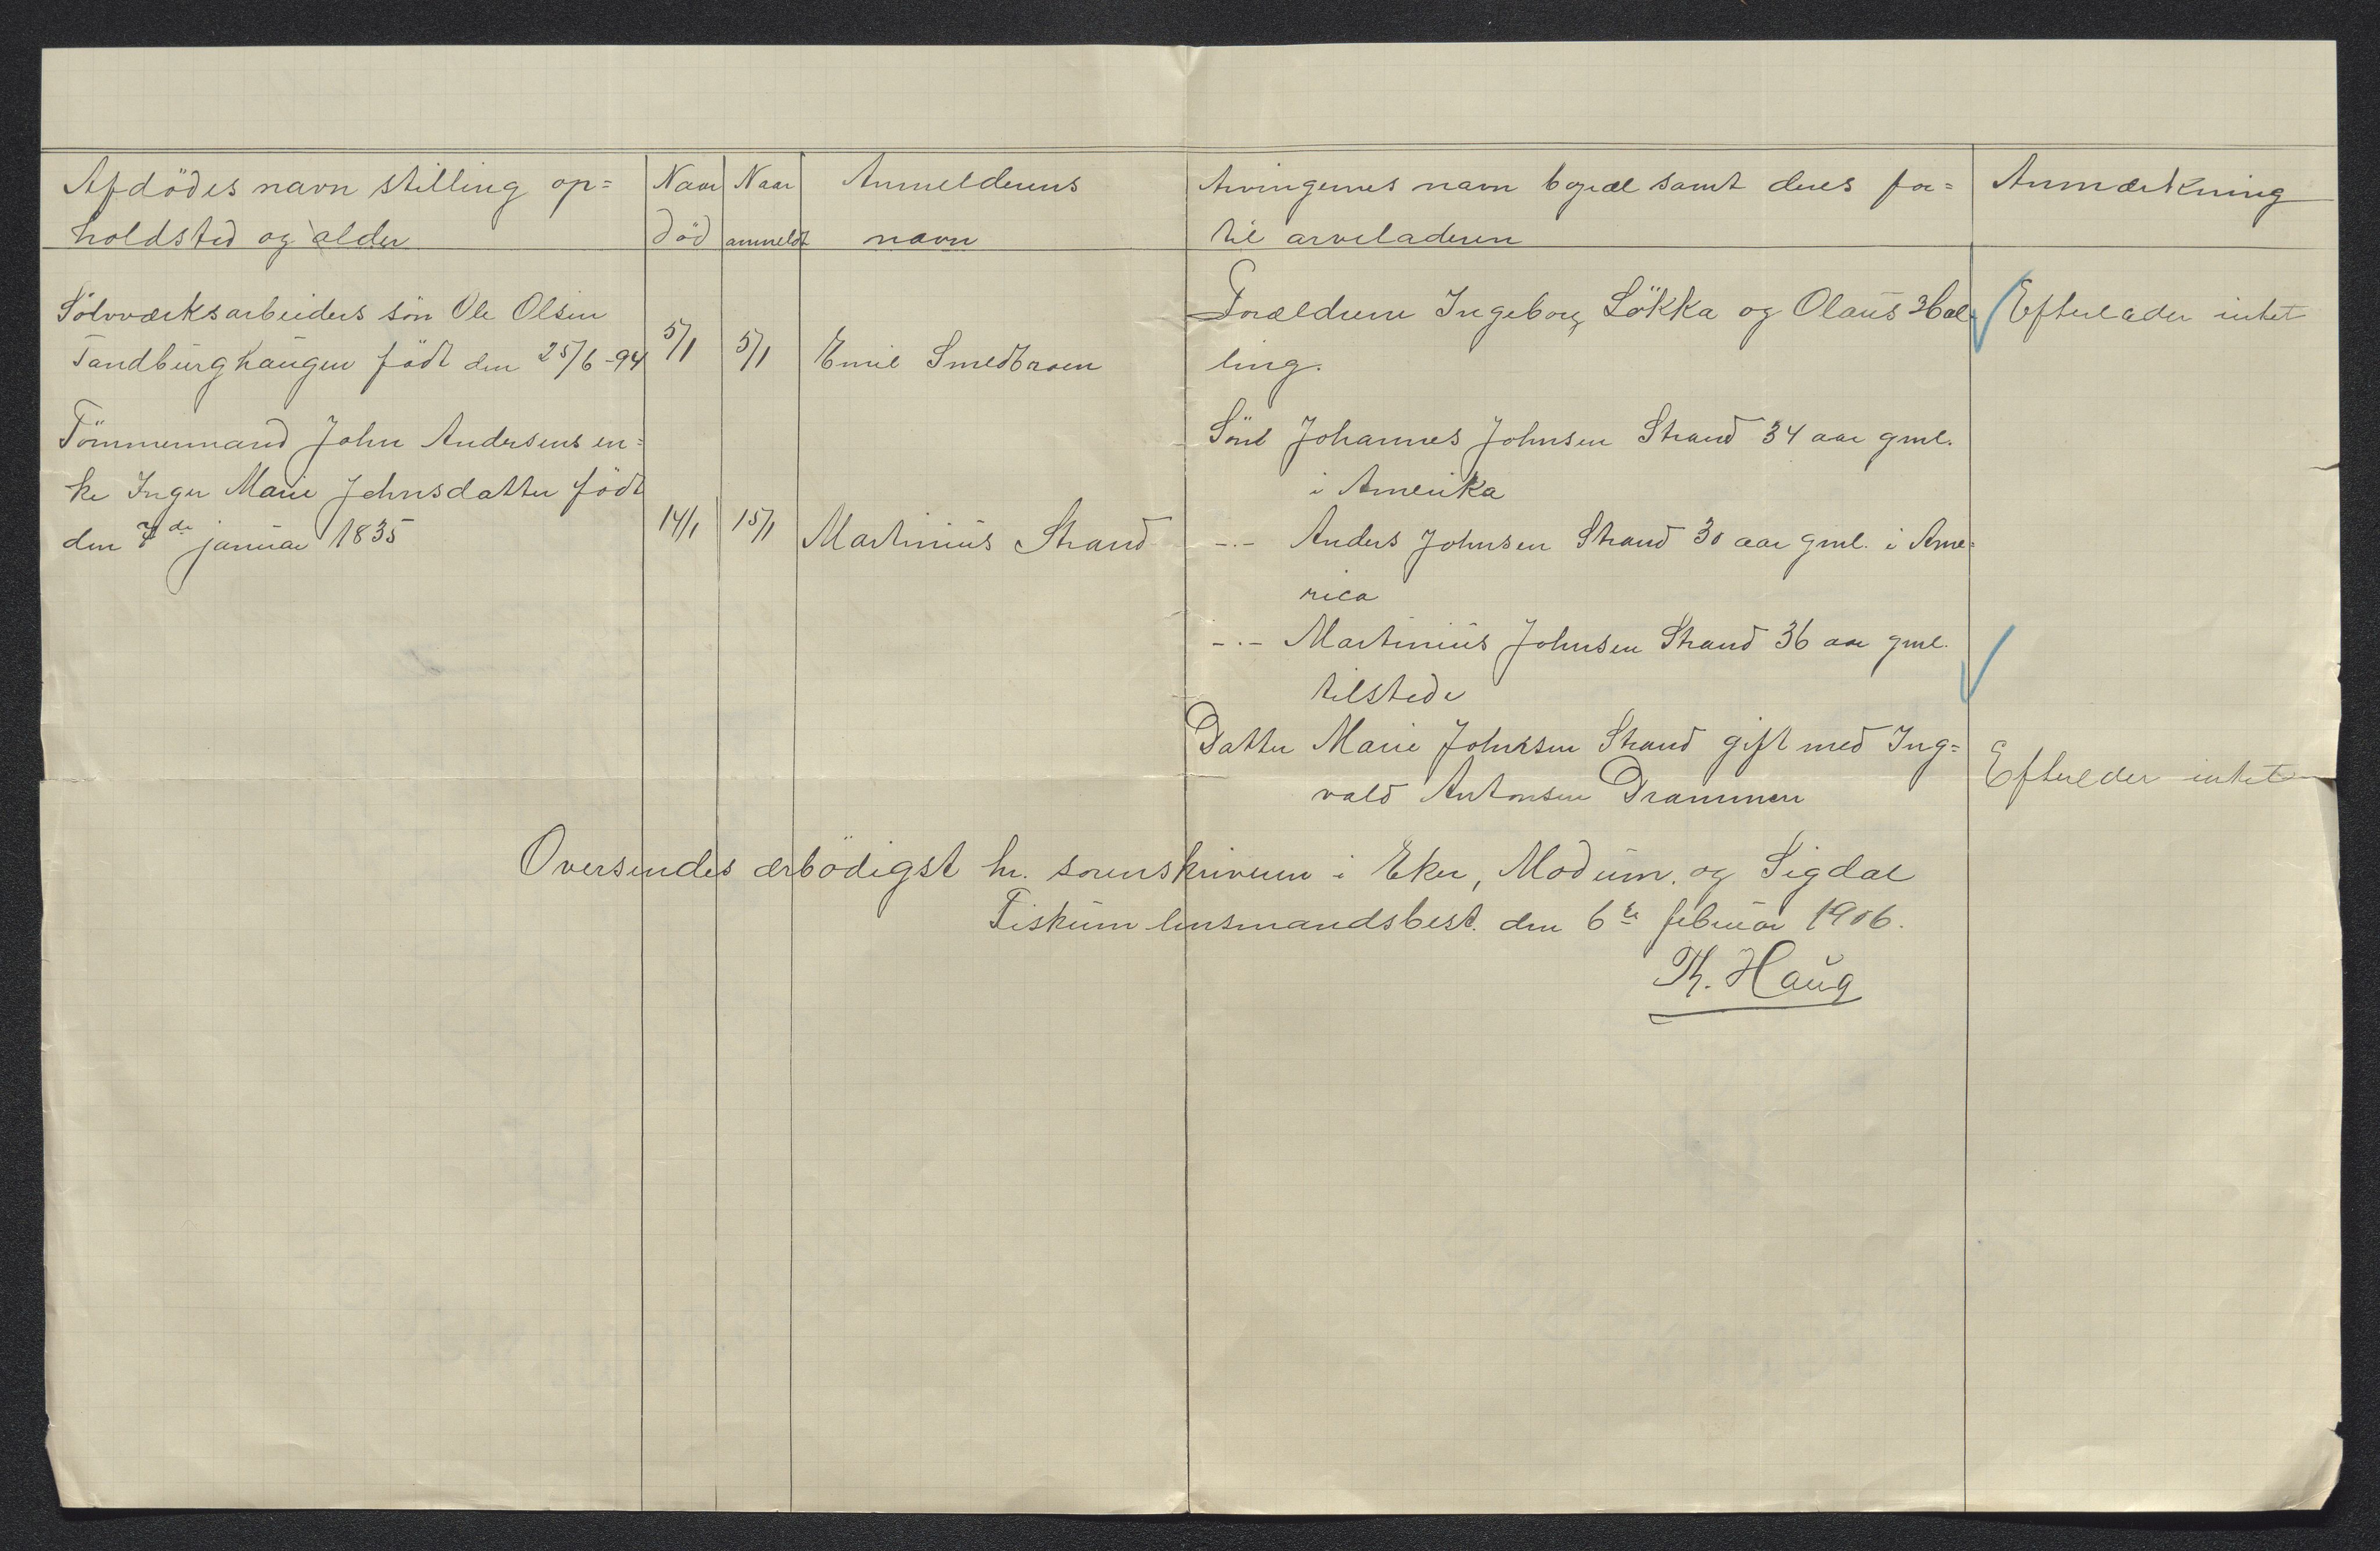 Afdödes navn stilling op= Naar Naar Anmelderens Arvingernes navn bopæl samt deres for= Anmærkning
holdsted og alder död anmeldt navn til arveladeren
Sölvværksarbeiders sön Ole Olsen Forældrene Ingeborg Lökka og Olaus Efterlader intet
Sandburghaugen födt den 25/6-94 5/1 5/1 Emil Smedbraaten ling.
Tömmermand John Andersens en= Sönl Johannes Johnsen Strand 34 aar gml.
ke Inger Marie Johnsdatter födt i Amerika
den 7de januar 1835 14/1 15/1 Martinius Strand -.- Anders Johnsen Strand 30 aar gml. i Ame=
rica
-.- Martinius Johnsen Strand 36 aar gml.
tilstede
Datter Marie Johnsen Strand gift med Ing=
vald Antonsen Drammen Efterleder intet
Oversendes ærbödigst hr. sorenskriveren i Eker, Modum, og Sigdal
Fiskum lensmandsbest. den 6te februar 1906.
Th. Haug